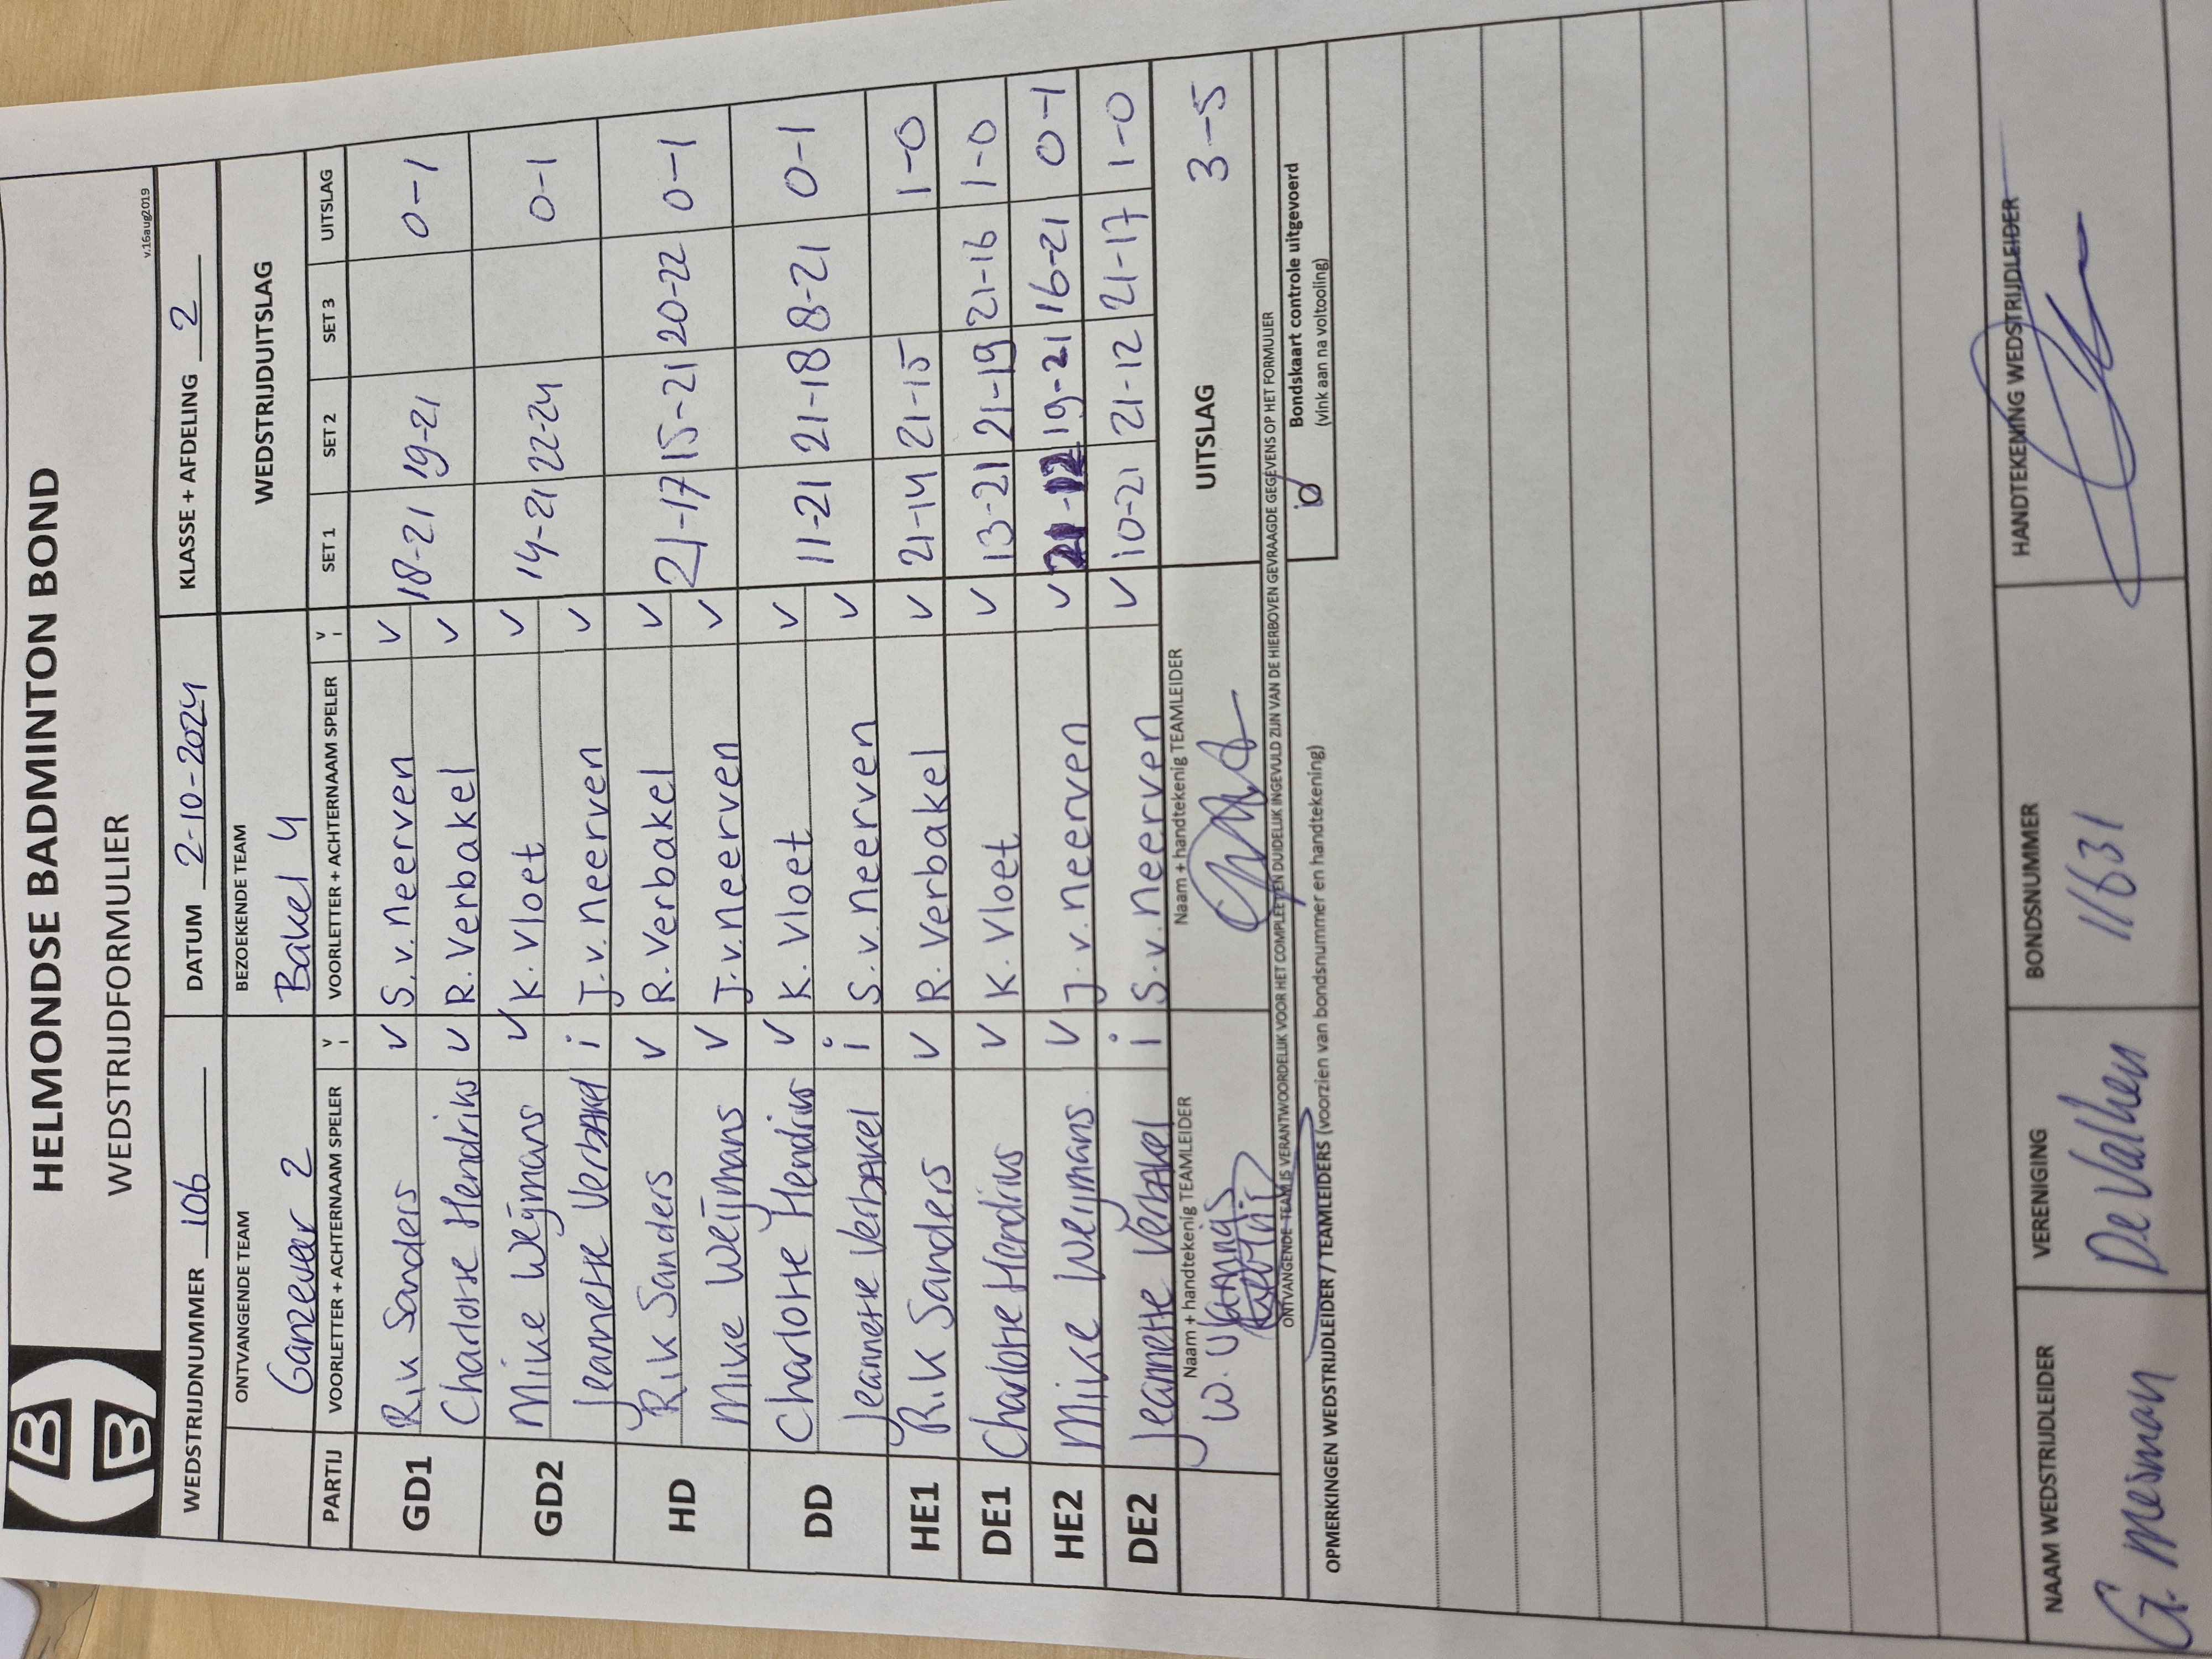 HELMONDSE BADMINTON BOND
WEDSTRIJDFORMULIER
v.16aug2019
WEDSTRIJDNUMMER 106 DATUM 2-10-2024 KLASSE + AFDELING 2
ONTVANGENDE TEAM BEZOEKENDE TEAM WEDSTRIJDUITSLAG
Ganzeveer 2 Bakel 4
PARTIJ VOORLETTER + ACHTERNAAM SPELER V I VOORLETTER + ACHTERNAAM SPELER V I SET 1 SET 2 SET 3 UITSLAG
GD1 Rik Sanders v S.v.Neerven v 18-21 19-21 0-1
Charlotte Hendriks v R.Verbakel v
GD2 Mike Weijmans v K.Vloet v 14-21 22-24 0-1
Jeannette Verbakel i J.v.neerven v
HD Rik Sanders v R.Verbakel v 21-17 15-21 20-22 0-1
Mike Weijmans v J.v.neerven v
DD Charlotte Hendriks v K.Vloet v 11-21 21-18 8-21 0-1
Jeannette Verbakel i S.v.neerven v
HE1 Rik Sanders v R.Verbakel v 21-14 21-15 1-0
DE1 Charlotte Hendriks v K.Vloet v 13-21 21-19 21-16 1-0
HE2 Mike Weijmans v J.v.neerven v 21-12 19-21 16-21 0-1
DE2 Jeannette Verbakel i S.v.neerven v 10-21 21-12 21-17 1-0
Naam + handtekenig TEAMLEIDER Naam + handtekenig TEAMLEIDER UITSLAG 3-5
W.
ONTVANGENDE TEAM IS VERANTWOORDELIJK VOOR HET COMPLEET EN DUIDELIJK INGEVULD ZIJN VAN DE HIERBOVEN GEVRAAGDE GEGEVENS OP HET FORMULIER
Bondskaart controle uitgevoerd
(vink aan na voltooling)
OPMERKINGEN WEDSTRIJDLEIDER / TEAMLEIDERS (voorzien van bondsnummer en handtekening)
NAAM WEDSTRIJDLEIDER VERENIGING BONDSNUMMER HANDTEKENING WEDSTRIJDLEIDER
G. Mesman De Valken 11631